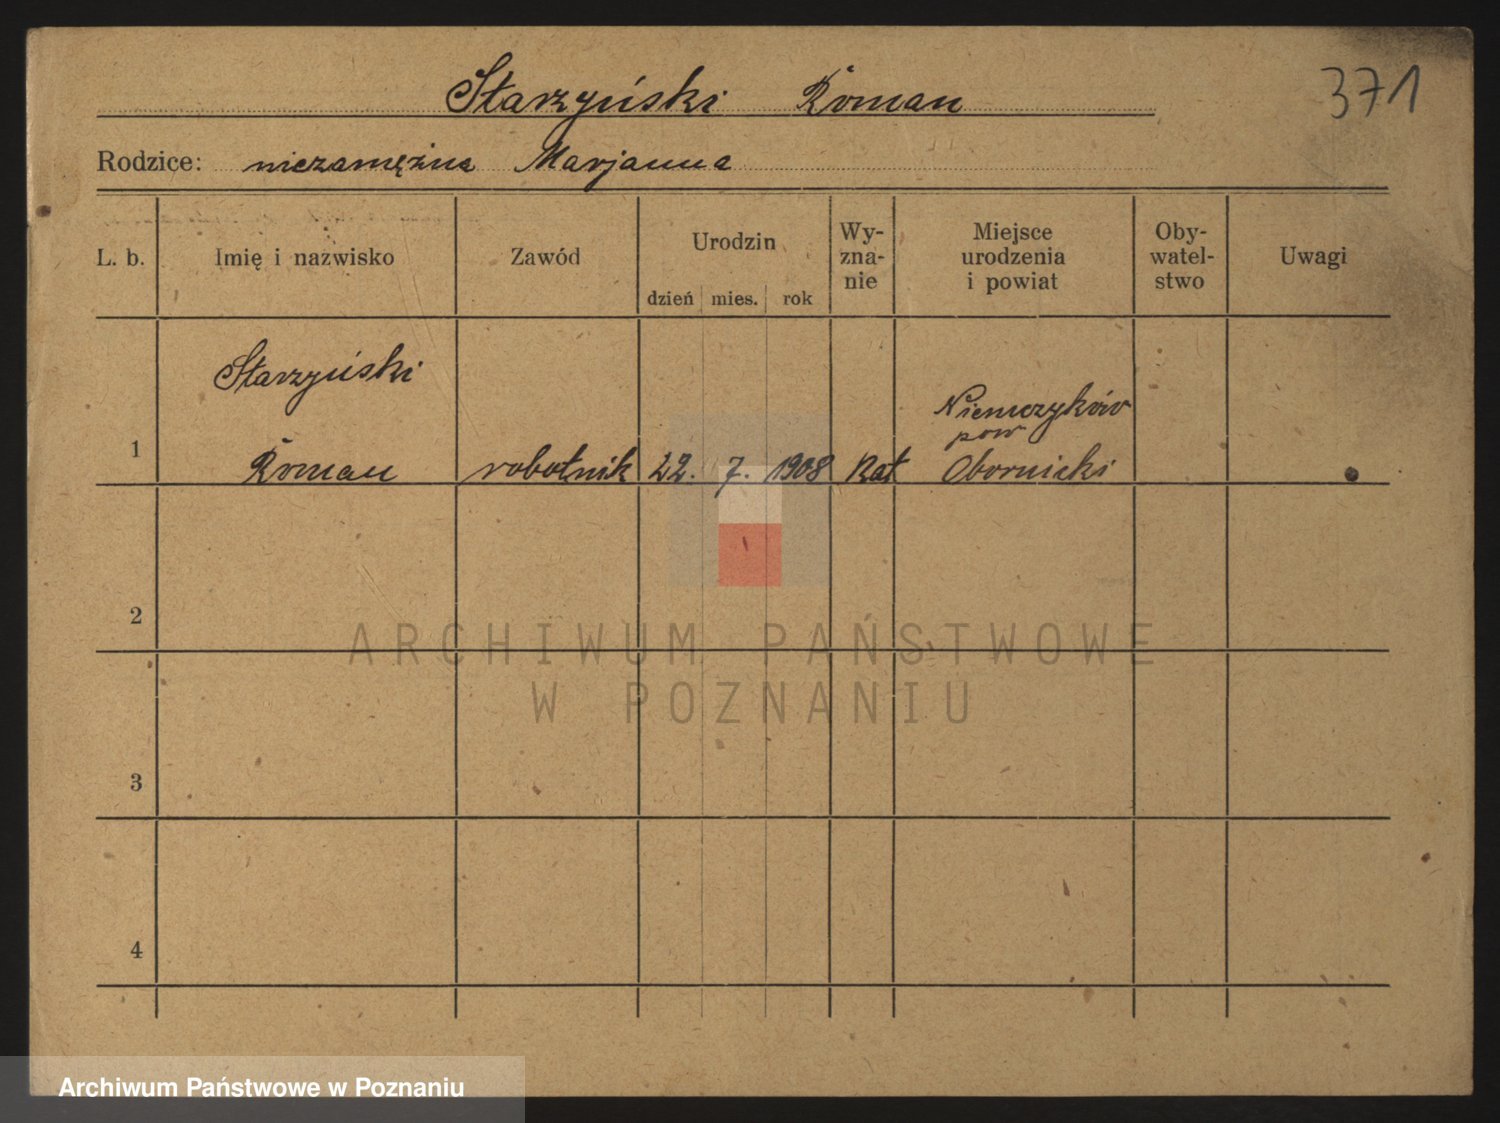 Starzyński Roman
371
Rodzice: niezamężna Marjanna
L. b.
Imię i nazwisko
Zawód
Urodzin
dzień mies. rok
Wy-
zna-
nie
Miejsce
urodzenia
i powiat
Oby-
watel-
stwo
Uwagi
Starzyński
1 Roman robotnik 22. 7. 1908 Kat
Niemczyków
pow
Obornicki
2
3
4
ARCHIWUM PAŃSTWOWE
W POZNANIU
Archiwum Państwowe w Poznaniu